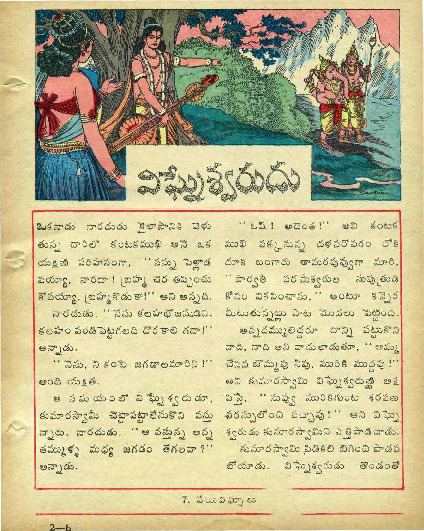 విఘ్నేశ్వరుడు
ఒకనాడు నారదుడు కైలాసానికి వెళు
తున్న దారిలో కంటకముఖి అనే ఒక
యక్షిణి పరిహసంగా, "నన్ను పెళ్లాడ
వయ్యా, నారదా! బ్రహ్మ చెర తప్పించు
కోవయ్యా, బ్రహ్మకొడుకా!" అని అన్నది.
నారదుడు, "నేను కలహభోజనుడిని.
కలహం వండిపెట్టగలది దొరకాలి గదా!"
అన్నాడు.
"నేను, నికంటె జగడాలమారిని!"
అంది యక్షిణి.
ఆ సమయంలో విఘ్నేశ్వరుడూ,
కుమారస్వామీ చెట్టాపట్టాలేసుకొని వస్తు
న్నారు. నారదుడు, "ఆ వస్తున్న అన్న
తమ్ముళ్ళ మధ్య జగడం తేగలవా?"
అన్నాడు.
"ఓస్! అదెంత!" అని కంటక
ముఖి పక్కనున్న
దూకి బంగారు తామరపువ్వుగా మారి,
"పార్వతీ పరమేశ్వరుల సుపుత్రుడి
కోసం వికసించాను." అంటూ
మీటుతున్నట్లు పాట మొదలు పెట్టింది.
అన్నదమ్ములిద్దరూ దాన్ని పట్టుకొని
నాది, నాది అని వాదులాడుతూ, "అమ్మ
చేసిన బొమ్మవు నీవు, మురికి ముద్దవు!"
అని కుమారస్వామి విఘ్నేశ్వరుణ్ణి ఆక్షే
పిస్తే, "నువ్వు మురికిగుంట శరవణ
సరస్సులోంచి వచ్చావు!" అని విఘ్నే
శ్వరుడు కుమారస్వామిని ఎత్తిపొడిచాడు.
కుమారస్వామి పిడికిలి బిగించి పొడవ
బోయాడు. విఘ్నేశ్వరుడు తొండంతో
7.
2—b